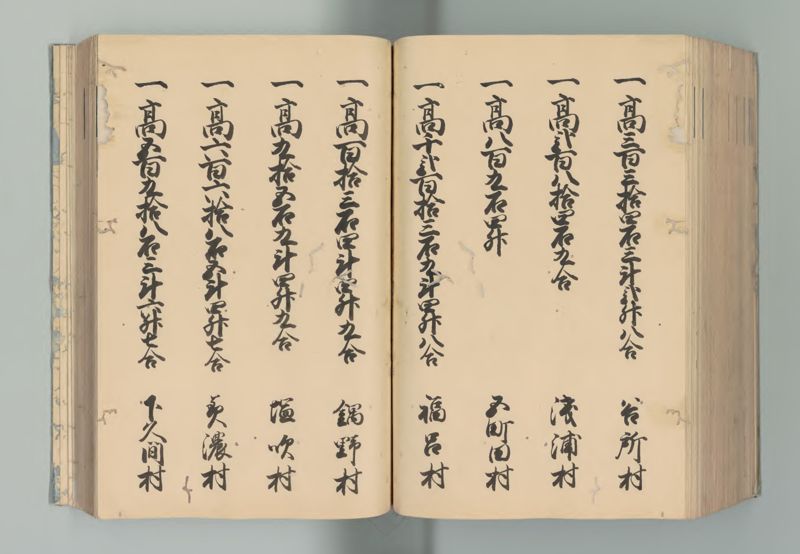 一高三百三拾四石三斗弐升八合 台所村
一高弐百八拾四石九合 浅浦村
一高八百九石四升 五町田村
一高千弐百拾三石九斗四升八合 福呂村
一高百拾三石四斗四升九合 鍋野村
一高九拾五石九斗四升九合 塩吹村
一高六百六拾八石五斗四升七合 美濃村
一高五百九拾八石三斗一升七合 下久間村